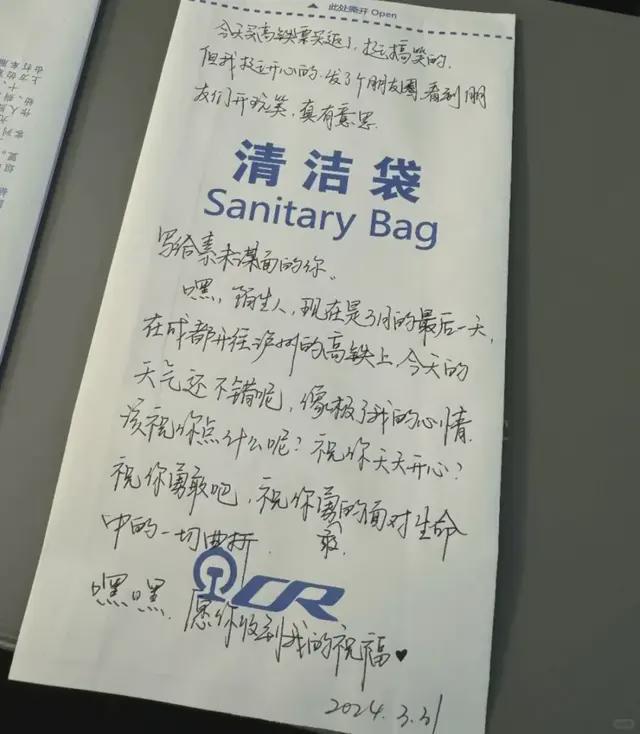 ▲ 此处撕开 Open
今天买高铁票买返了，挺搞笑的.
但我挺开心的.发了个朋友圈.看到朋
友们开玩笑，真有意思.
清洁袋
Sanitary Bag
写给素未谋面的你.
嘿，陌生人，现在是3月的最后一天，
在成都开往泸州的高铁上，今天的
天气还不错呢，像极了我的心情.
该祝你点什么呢？祝你天天开心？
祝你勇敢吧，祝你勇敢的面对生命
中的一切曲折.
CR
嘿嘿.愿你收到我的祝福♥
2024.3.31